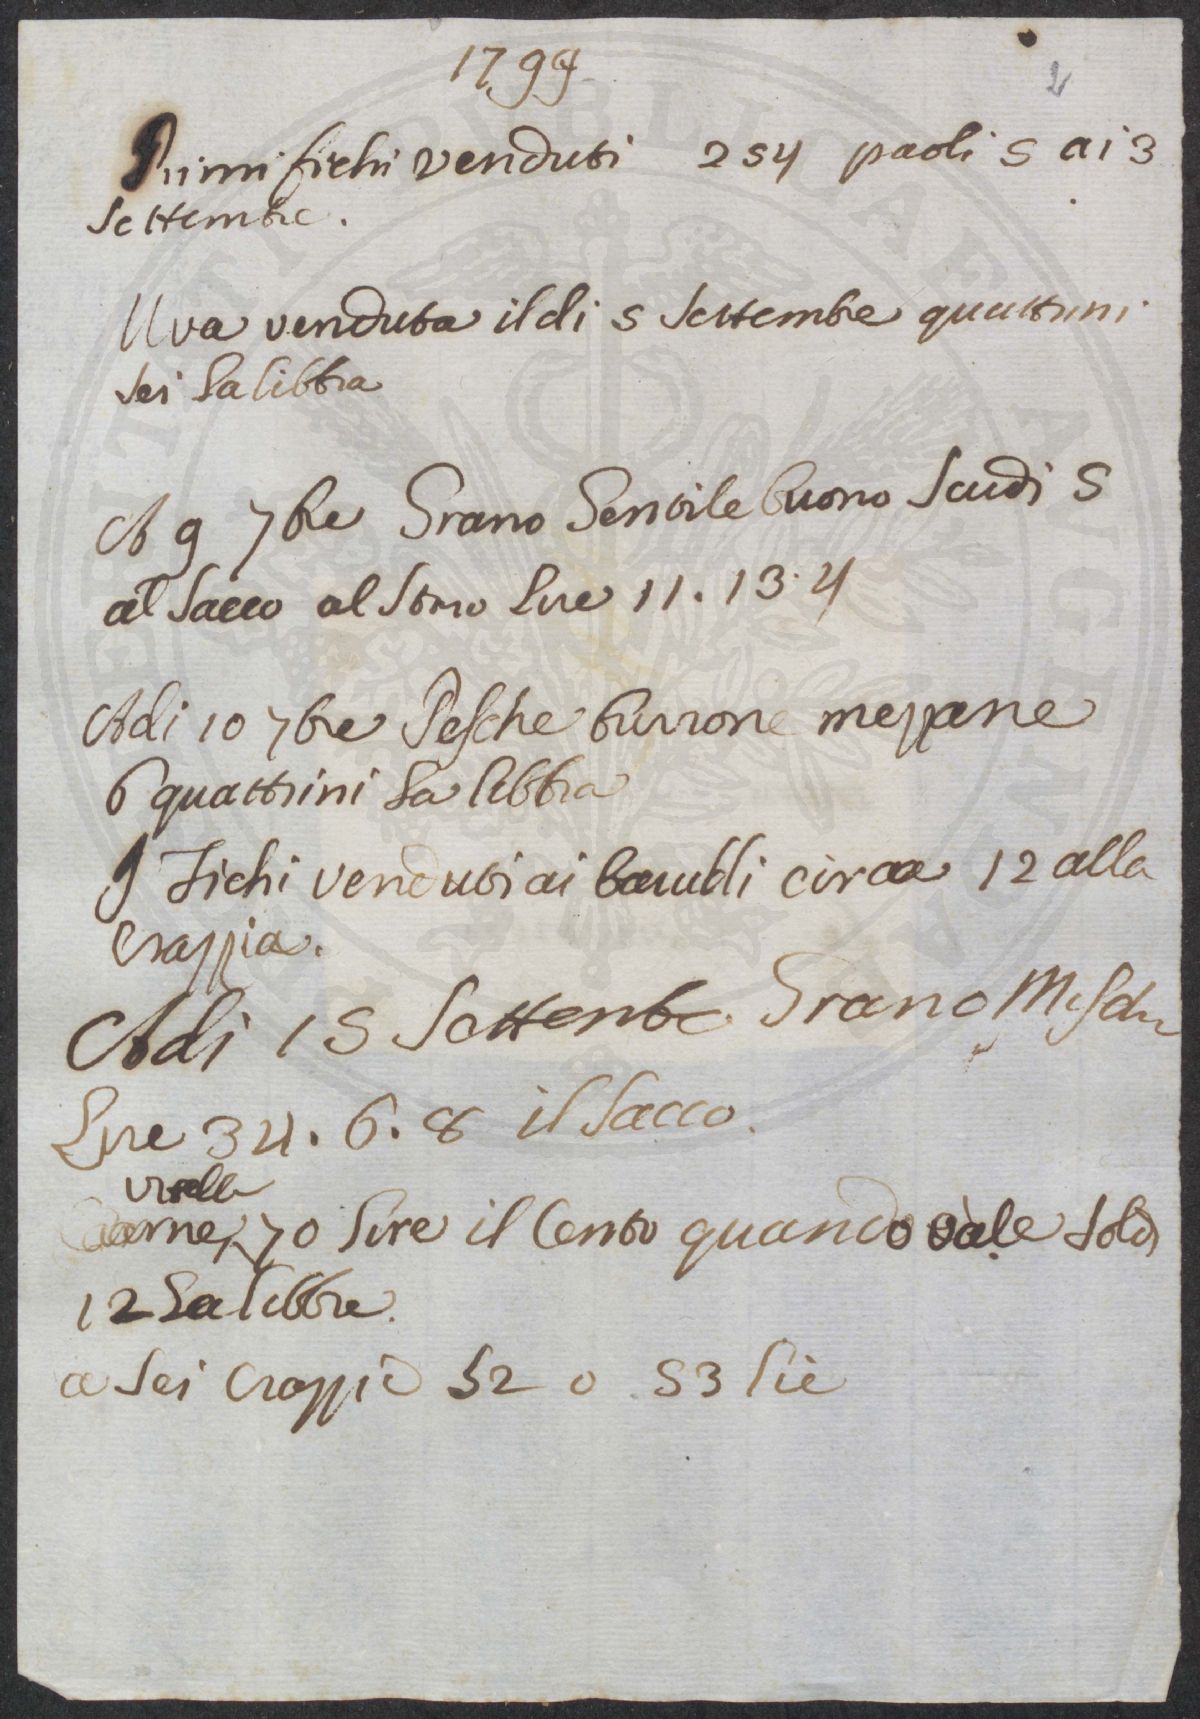 1799
2
Primi fichi venduti 254 paoli 5 ai 3
Settembre.
Uva venduta il di 5 Settembre quattrini
sei la libbra
A 9 7bre Grano Gentile buono Scudi 5
al Sacco al Staro Lire 11.13.4
Adi 10 7bre Pesche burrone mezzane
6 quattrini la libbra
Fichi venduti ai circa 12 alla
Crazzia.
Adi 15 Settembre Grano
Lire 34.6.8 il Sacco.
vitella
Carne 70 lire il Cento quando vale Soldi
12 la libbra.
a Sei Crazzie 52 o 53 lire